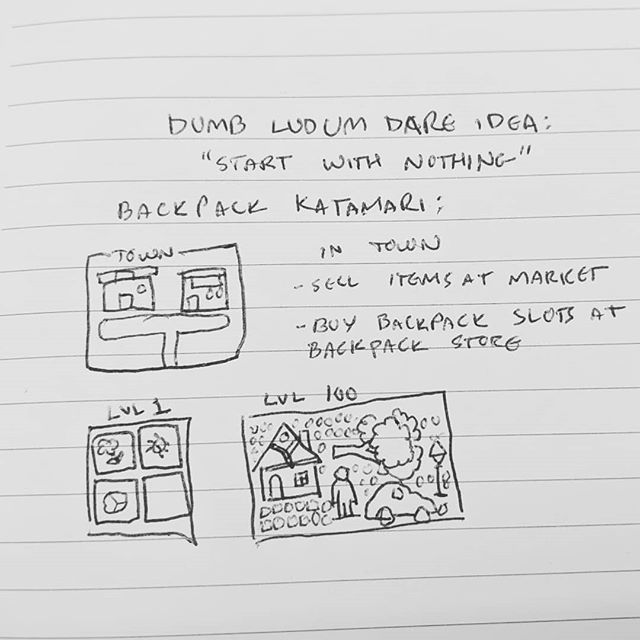 DUMB LUDUM DARE IDEA:
"START WITH NOTHING"
BACKPACK KATAMARI:
TOWN
IN TOWN
- SELL ITEMS AT MARKET
- BUY BACKPACK SLOTS AT
BACKPACK STORE
LVL 1
LVL 100